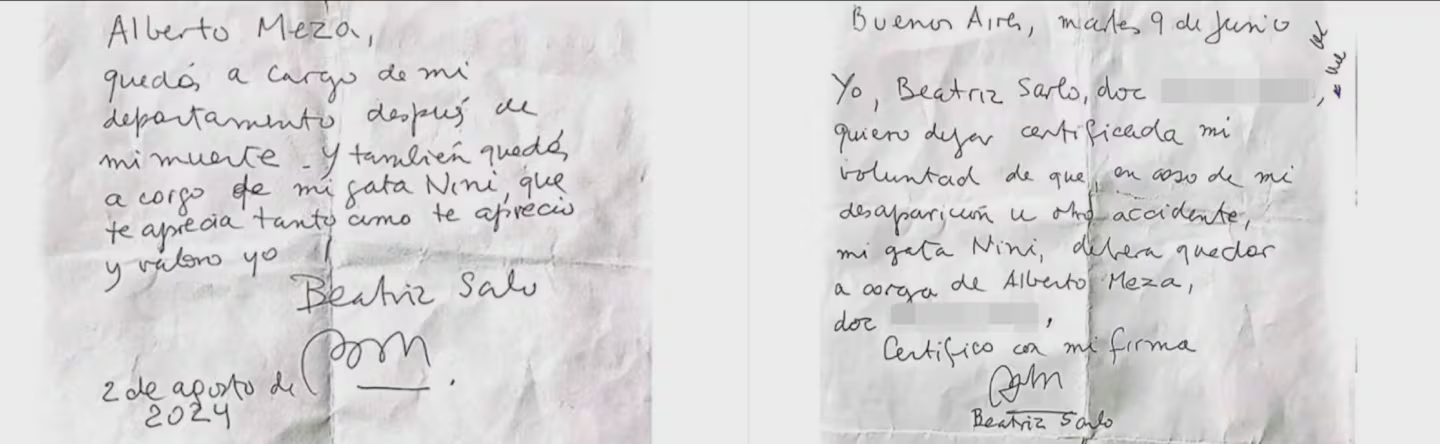 Alberto Meza,
quedás a cargo de mi
departamento después de
mi muerte. Y también quedás
a cargo de mi gata Nini, que
te aprecia tanto como te aprecio
y valoro yo
Beatriz Salo
2 de agosto de
2024
Buenos Aires, martes 9 de Junio
Yo, Beatriz Sarlo, doc
quiero dejar certificada mi
voluntad de que, en caso de mi
desaparición u otro accidente,
mi gata Nini, debera quedar
a cargo de Alberto Meza,
doc ,
Certifico con mi firma
Beatriz Sarlo